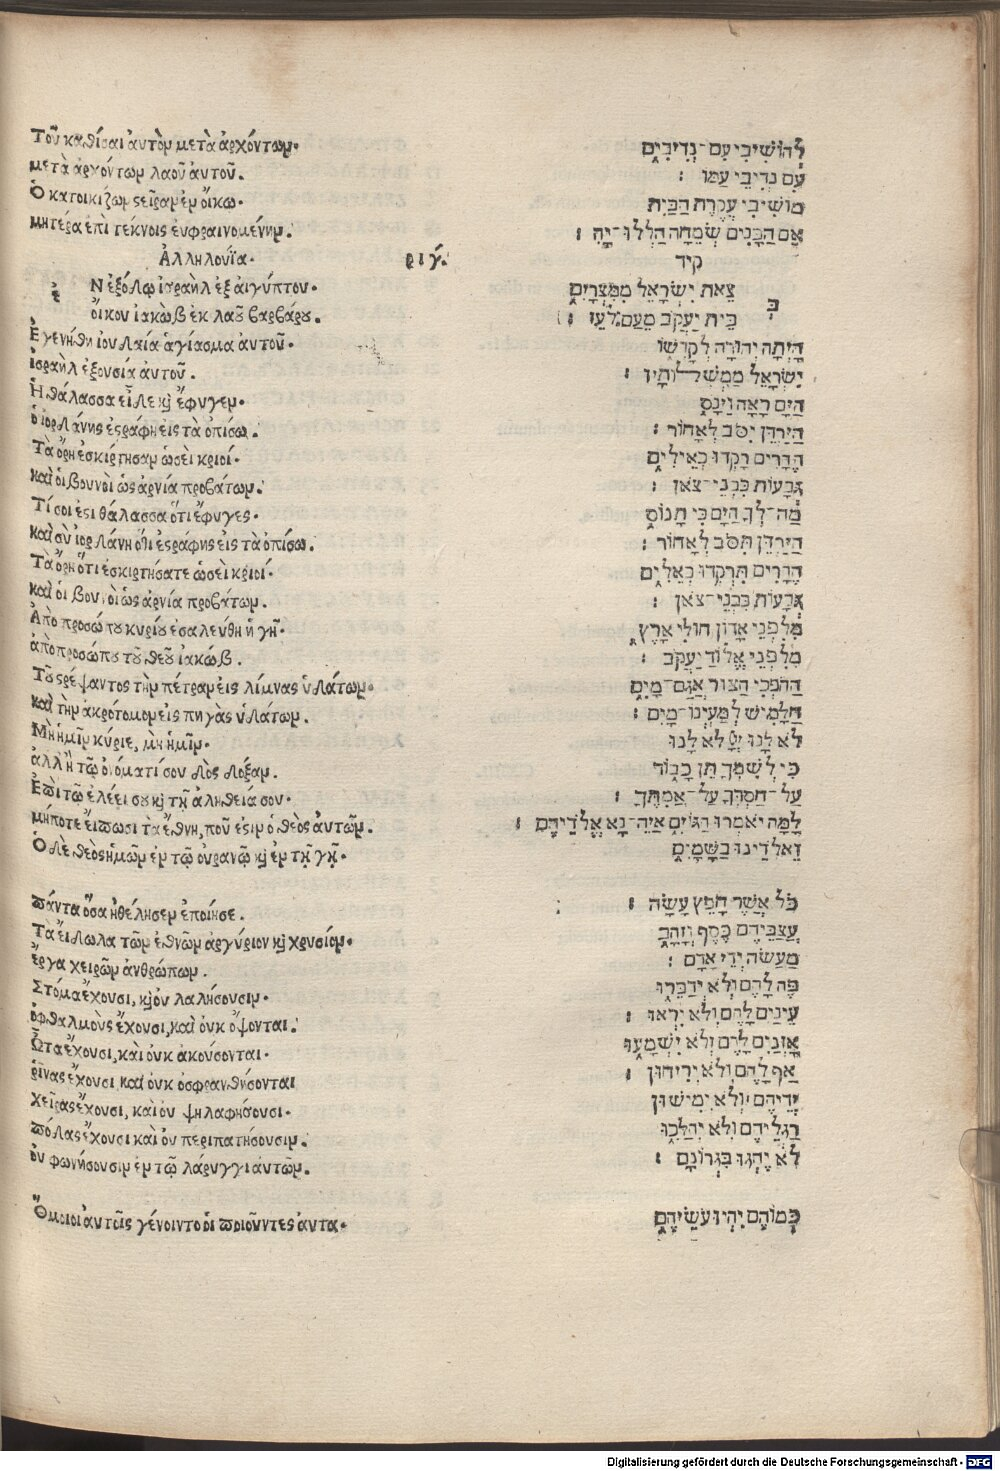 Τοῦ καθίσαι ἀυτὸν μετὰ ἀρχόντων.
μετὰ ἀρχόντων λαοῦ ἀυτοῦ.
Ὁ κατοικίζων ςεῖραν ἐν οἴκω.
μητέρα ἐπὶ τέκνοις ἐυφραινομένην.
Ἀλληλούϊα. ριγ΄.
ἐ Ν ἐξόδω ἰσραὴλ ἐξ ἀιγύπτου.
ὄικου ἰακὼβ ἐκ λαοῦ βαρβάρου.
Ἐγενήθη ἰουδαία ἁγίασμα ἀυτοῦ.
ἰσραὴλ ἐξουσία ἀυτοῦ.
Ἡ θάλασσα εἶδε κỳ ἔφυγεν.
ὁ ἰορδάνης ἐςράφη εἰς τὰ ὀπίσω.
Τὰ ὄρη ἐσκίρτησαν ὡσεὶ κριοί.
καὶ ὁι βουνοὶ ὡς ἀρνία προβάτων.
Τί σοι ἐςι θάλασσα ὅτι ἔφυγες.
καὶ σὺ ἰορδάνη ὅτι ἐςράφης εἰς τὰ ὀπίσω.
Τὰ ὄρη ὅτι ἐσκιρτήσατε ὡσεὶ κριοί.
καὶ ὁι βουνοὶ ὡς ἀρνία προβάτων.
Ἀπὸ προσώπου κυρίου ἐσαλεύθη ἡ γῆ.
ἀπὸ προσώπου τοῦ θεοῦ ἰακώβ.
Τοῦ ςρέψαντος τὴν πέτραν εἰς λίμνας ὑδάτων.
καὶ τὴν ἀκρότομον εἰς πηγὰς ὑδάτων.
Μὴ ἡμῖν κύριε, μὴ ἡμῖν.
ἀλλ' ἢ τῷ ὀνόματί σου δὸς δόξαν.
Ἐπὶ τῷ ἐλέει σου κỳ τῇ ἀληθεία σου.
μήποτε ἔιπωσι τὰ ἔθνη, ποῦ ἐςιν ὁ θεὸς ἀυτῶν.
Ὁ δὲ θεὸς ἡμῶν ἐν τῷ ὀυρανῷ κỳ ἐν τῇ γῇ.
πάντα ὅσα ἠθέλησεν ἐποίησε.
Τὰ ἔιδωλα τῶν ἐθνῶν ἀργύριον κỳ χρυσίον.
ἔργα χειρῶν ἀνθρώπων.
Στόμα ἔχουσι, κỳ ὀυ λαλήσουσιν.
ὀφθαλμοὺς ἔχουσι, καὶ ὀυκ ὄψονται.
Ὦτα ἔχουσι, καὶ ὀυκ ἀκούσονται.
ῥῖνας ἔχουσι, καὶ ὀυκ ὀσφρανθήσονται
χεῖρας ἔχουσι, καὶ ὀυ ψηλαφήσουσι.
πόδας ἔχουσι καὶ ὀυ περιπατήσουσιν.
ὀυ φωνήσουσιν ἐν τῷ λάρυγγι ἀυτῶν.
Ὅμοιοι ἀυτοῖς γένοιντο ὁι ποιοῦντες ἀυτα.
לְהוֹשִׁיבִי עִם־נְדִיבִים
עִם נְדִיבֵי עַמּוֹ :
מוֹשִׁיבִי עֲקֶרֶת הַבַּיִת
אֵם הַבָּנִים שְׂמֵחָה הַלְלוּ־יָהּ :
קיד
ב צֵאת יִשְׂרָאֵל מִמִּצְרָיִם
בֵּית יַעֲקֹב מֵעַם לֹעֵז :
הָיְתָה יְהוּדָה לְקָדְשׁוֹ
יִשְׂרָאֵל מַמְשְׁלוֹתָיו :
הַיָּם רָאָה וַיָּנֹס
הַיַּרְדֵּן יִסֹּב לְאָחוֹר :
הֶהָרִים רָקְדוּ כְאֵילִים
גְּבָעוֹת כִּבְנֵי־צֹאן :
מַה־לְּךָ הַיָּם כִּי תָנוּס
הַיַּרְדֵּן תִּסֹּב לְאָחוֹר :
הֶהָרִים תִּרְקְדוּ כְאֵלִים
גְּבָעוֹת כִּבְנֵי־צֹאן :
מִלִּפְנֵי אָדוֹן חוּלִי אָרֶץ
מִלִּפְנֵי אֱלוֹהַּ יַעֲקֹב :
הַהֹפְכִי הַצּוּר אֲגַם־מָיִם
חַלָּמִישׁ לְמַעְיְנוֹ־מָיִם :
לֹא לָנוּ יְיָ לֹא לָנוּ
כִּי לְשִׁמְךָ תֵּן כָּבוֹד
עַל־חַסְדְּךָ עַל־אֲמִתֶּךָ :
לָמָּה יֹאמְרוּ הַגּוֹיִם אַיֵּה־נָא אֱלֹהֵיהֶם :
וֵאלֹהֵינוּ בַשָּׁמָיִם
כֹּל אֲשֶׁר חָפֵץ עָשָׂה :
עֲצַבֵּיהֶם כֶּסֶף וְזָהָב
מַעֲשֵׂה יְדֵי אָדָם :
פֶּה לָהֶם וְלֹא יְדַבֵּרוּ
עֵינַיִם לָהֶם וְלֹא יִרְאוּ :
אָזְנַיִם לָהֶם וְלֹא יִשְׁמָעוּ
אַף לָהֶם וְלֹא יְרִיחוּן :
יְדֵיהֶם וְלֹא יְמִישׁוּן
רַגְלֵיהֶם וְלֹא יְהַלֵּכוּ
לֹא יֶהְגּוּ בִּגְרוֹנָם :
כְּמוֹהֶם יִהְיוּ עֹשֵׂיהֶם
Digitalisierung gefördert durch die Deutsche Forschungsgemeinschaft - DFG